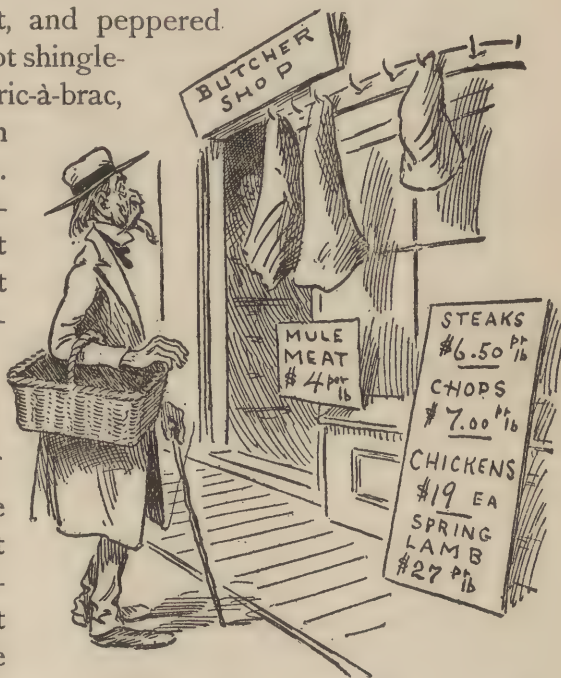 t, and peppered
ot shingle-
ric-à-brac,
n
.
–
t
t
–
.
e
t
–
t
e
BUTCHER
SHOP
MULE
MEAT
$4 per lb
STEAKS
$6.50 pr lb
CHOPS
$7.00 pr lb
CHICKENS
$19 EA
SPRING
LAMB
$27 pr lb